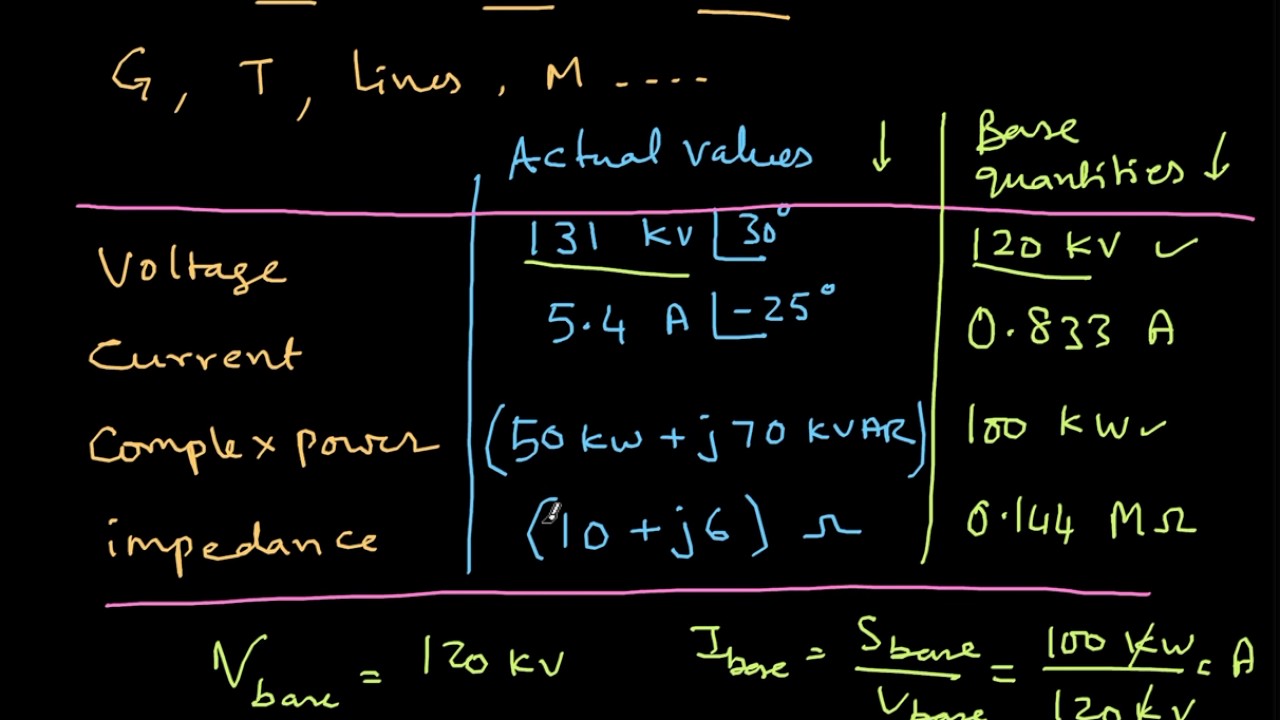 G, T, Lines, M ....
Actual values ↓
Base quantities ↓
Voltage 131 kV ∠30° 120 kV ✓
Current 5.4 A ∠-25° 0.833 A
Complex power (50 kW + j 70 KVAR) 100 kW ✓
impedance (10 + j6) Ω 0.144 MΩ
V base = 120 kV
I base = S base / V base = 100 kW / 120 kV = A